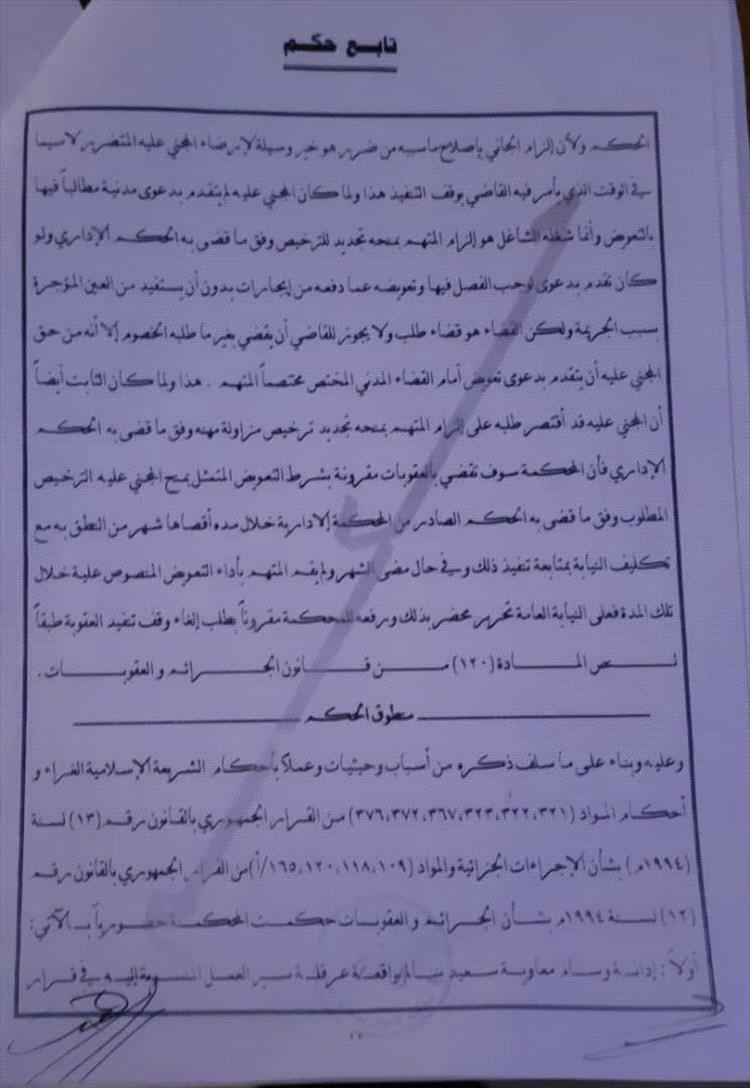 تابع حكم
الحكم ولأن إلزام الجاني بإصلاح ماسببه من ضرر هو خير وسيلة لإرضاء المجني عليه المتضرر لاسيما
في الوقت الذي يأمر فيه القاضي بوقف التنفيذ هذا ولما كان المجني عليه لم يتقدم بدعوى مدنية مطالباً فيها
بالتعويض وأنما شغله الشاغل هو إلزام المتهم بمنحه تجديد للترخيص وفق ما قضى به الحكم الإداري ولو
كان تقدم بدعوى لوجب الفصل فيها وتعويضه عما دفعه من إيجارات بدون أن يستفيد من العين المؤجرة
بسبب الجريمة ولكن القضاء هو قضاء طلب ولا يجوز للقاضي أن يقضي بغير ما طلبه الخصوم إلا أنه من حق
المجني عليه أن يتقدم بدعوى تعويض أمام القضاء المدني المختص مختصماً المتهم . هذا ولما كان الثابت أيضاً
أن المجني عليه قد أقتصر طلبه على إلزام المتهم بمنحه تجديد ترخيص مزاولة مهنه وفق ما قضى به الحكم
الإداري فأن المحكمة سوف تقضي بالعقوبات مقرونة بشرط التعويض المتمثل بمنح المجني عليه الترخيص
المطلوب وفق ما قضى به الحكم الصادر من المحكمة الإدارية خلال مده أقصاها شهر من النطق به مع
تكليف النيابة بمتابعة تنفيذ ذلك وفي حال مضى الشهر ولم يقم المتهم بأداء التعويض المنصوص علية خلال
تلك المدة فعلى النيابة العامة تحرير محضر بذلك ورفعه للمحكمة مقروناً بطلب إلغاء وقف تنفيذ العقوبة طبقاً
لنص المادة (١٢٠) من قانون الجرائم والعقوبات .
منطوق الحكم
وعليه وبناء على ما سلف ذكره من أسباب وحيثيات وعملاً بأحكام الشريعة الإسلامية الغراء و
أحكام المواد (٣٢١،٣٢٢،٣٢٣،٣٦٧،٣٧٢،٣٧٦) من القرار الجمهوري بالقانون رقم (١٣) لسنة
(١٩٩٤م) بشأن الإجراءات الجزائية والمواد (١٠٩،١١٨،١٢٠،١٦٥/أ) من القرار الجمهوري بالقانون رقم
(١٢) لسنة ١٩٩٤م بشأن الجرائم والعقوبات حكمت المحكمة حضورياً بالآتي:
أولاً: إدانة وسام معاوية سعيد سالم بواقعة عرقلة سير العمل المنسوبة إليه في قرار